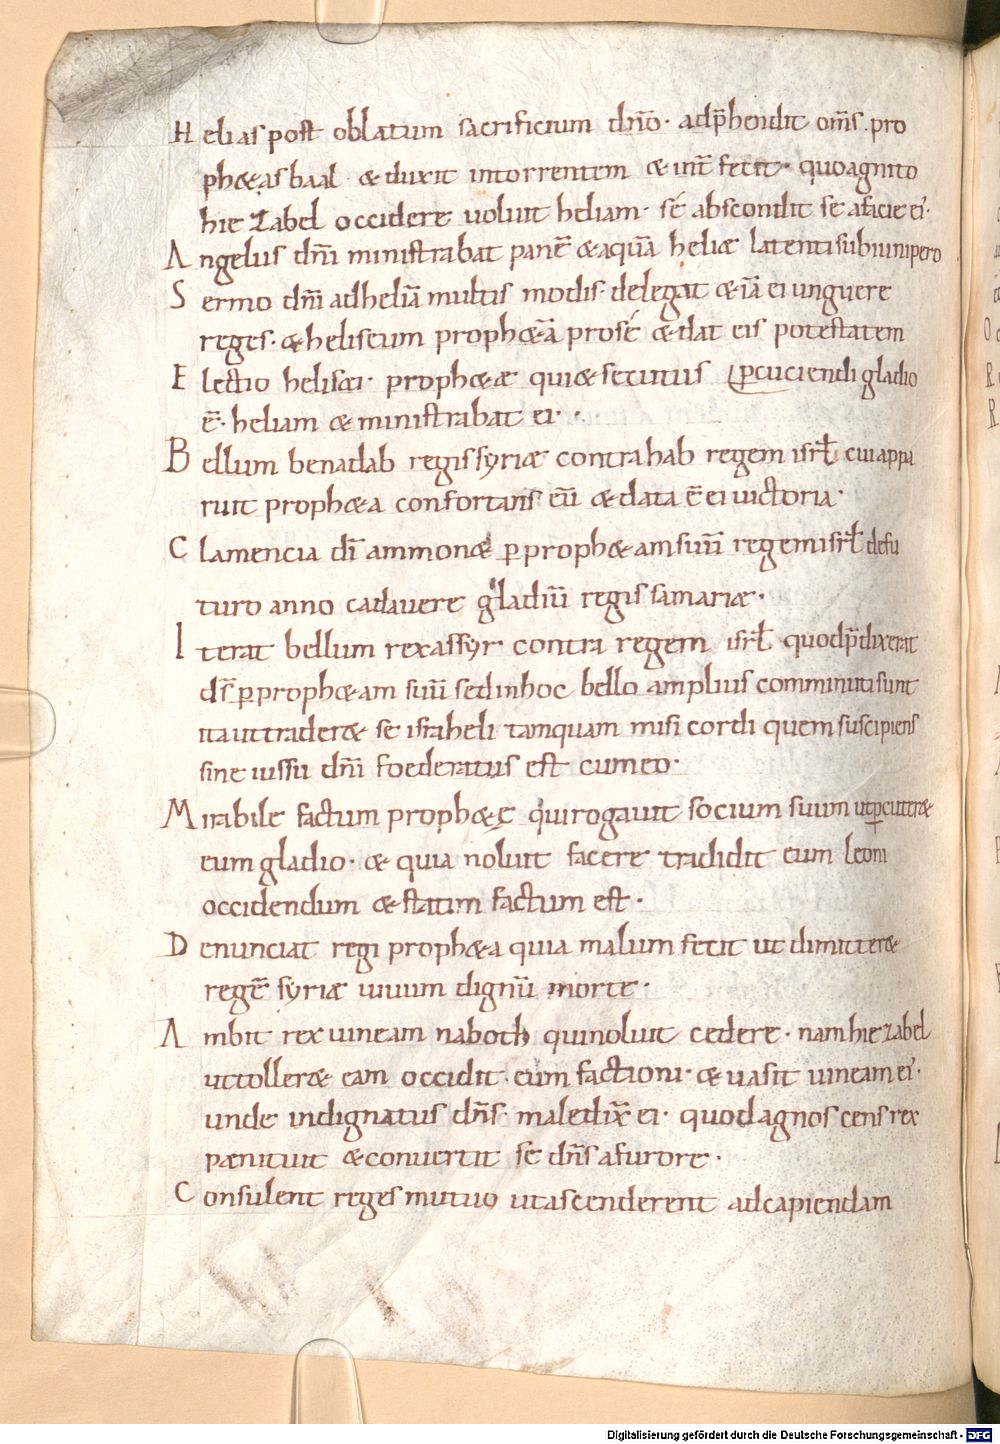 Helias post oblatum sacrificium dn̄o· adp̄hendit om̄s pro
ph&as baal & duxit intorrentem & int̄fecit· quoagnito
hiezabel occidere uoluit heliam· sé abscondit se afacie ei'·
Angelus dn̄i ministrabat panē &aquā heliæ latentisubiunipero
Sermo dn̄i adheliā multis modis· delegat &iā ei unguere
reges· &heliseum proph&ā prosé &dat eis potestatem
Electio helisæi· proph&æ qui&secutus ꝑcuciendi gladio
ē· heliam &ministrabat ei·
Bellum benadab regissyriæ contrahab regem isrƚ cui appa
ruit proph&a confortans eū &data ē ei uictoria·
Clamencia dī ammon& ꝑproph&amsuū regemisrƚ defu
turo anno cadauere gladiū regis samariæ·
Iterat bellum rexassyr contra regem isrƚ quodp̄dixerat
ds̄ ꝑproph&am suū sedinhoc bello amplius comminutisunt
itauttrader& se israheli tamquam misi cordi quem suscipiens
sine iussu dn̄i foederatus est cumeo·
Mirabile factum proph&ę quirogauit socium suum utꝑcuter&
eum gladio· & quia noluit facere tradidit eum leoni
occidendum &statim factum est·
Denunciat regi proph&a quia malum fecit ut dimitter&
regē syriæ uiuum dignū morte·
Ambit rex uineam naboth quinoluit cedere· namhiezabel
uttoller& eam occidit eum factioni· &uasit uineam ei'·
unde indignatus dn̄s· maledix̄ ei· quodagnoscens rex
pænituit &conuertit se dn̄s afurore·
Consulent reges mutuo utascenderent adcapiendam
Digitalisierung gefördert durch die Deutsche Forschungsgemeinschaft - DFG